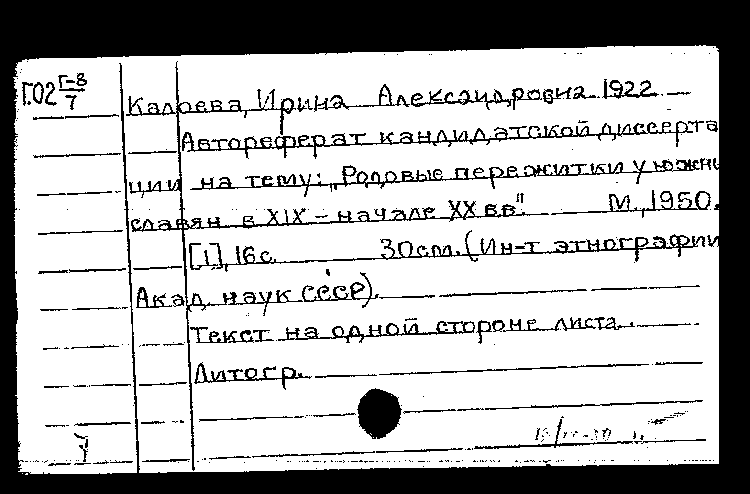 Г.02 Г-8/7
Калоева, Ирина Александровна 1922
Автореферат кандидатской диссерта
ции на тему: „Родовые пережитки у южны
славян в XIX – начале XX вв". М., 1950.
[1], 16 с. 30 см. (Ин-т этнографии
Акад. наук СССР).
Текст на одной стороне листа.
Литогр.